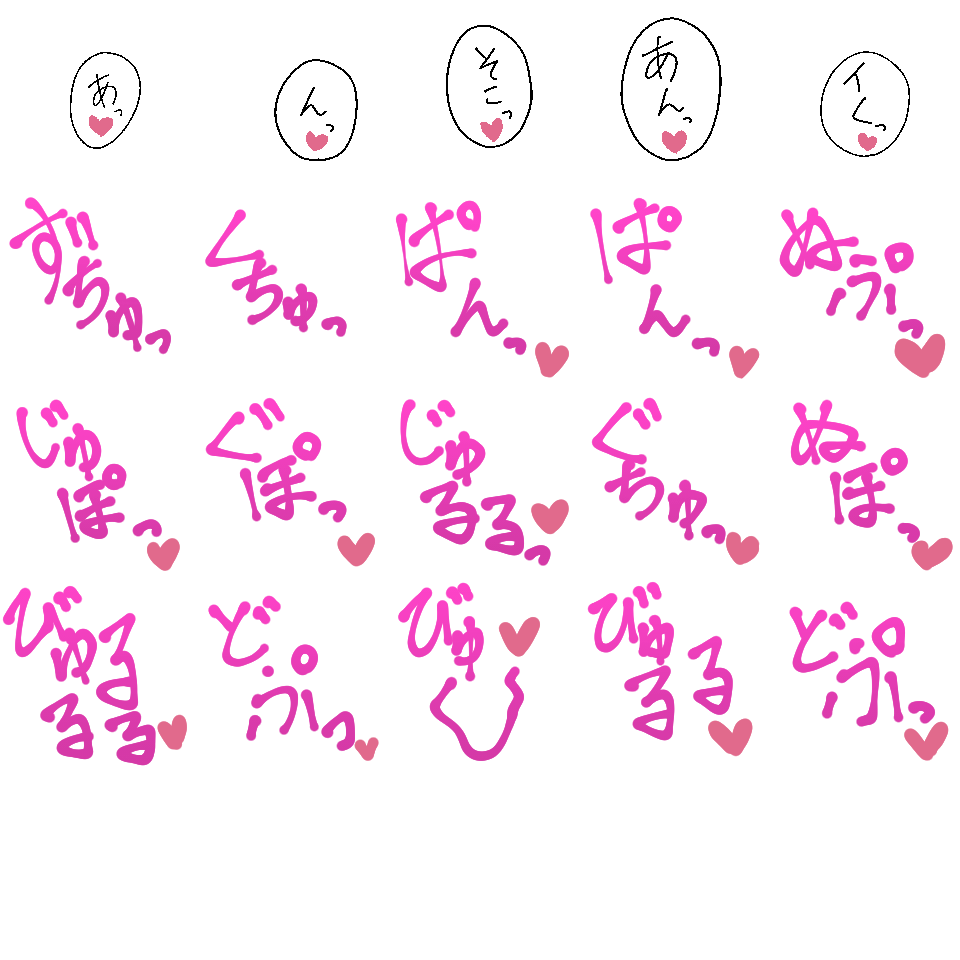 あっ♥
んっ♥
そこっ♥
あんっ♥
イくっ♥
ずちゅっ
くちゅっ
ぱんっ♥
ぱんっ♥
ぬぷっ♥
じゅぽっ♥
ぐぽっ♥
じゅるるっ♥
ぐちゅっ♥
ぬぽっ♥
びゅるるる♥
どぷっ♥
びゅ〜♥
びゅるる♥
どぷっ♥